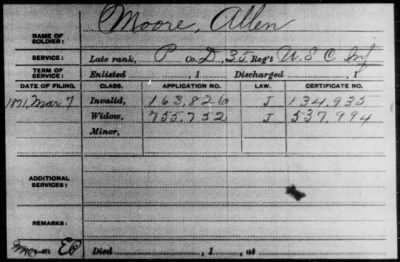 Moore, Allen
NAME OF SOLDIER:
SERVICE: Late rank, P Co. D, 35 Reg't U.S.C. Inf
TERM OF SERVICE: Enlisted , 1 Discharged , 1
DATE OF FILING. CLASS. APPLICATION NO. LAW. CERTIFICATE NO.
1871, Mar 7 Invalid, 163,826 J 134,935
Widow, 755,752 J 537,994
Minor,
ADDITIONAL SERVICES:
REMARKS:
Died , 1 , at